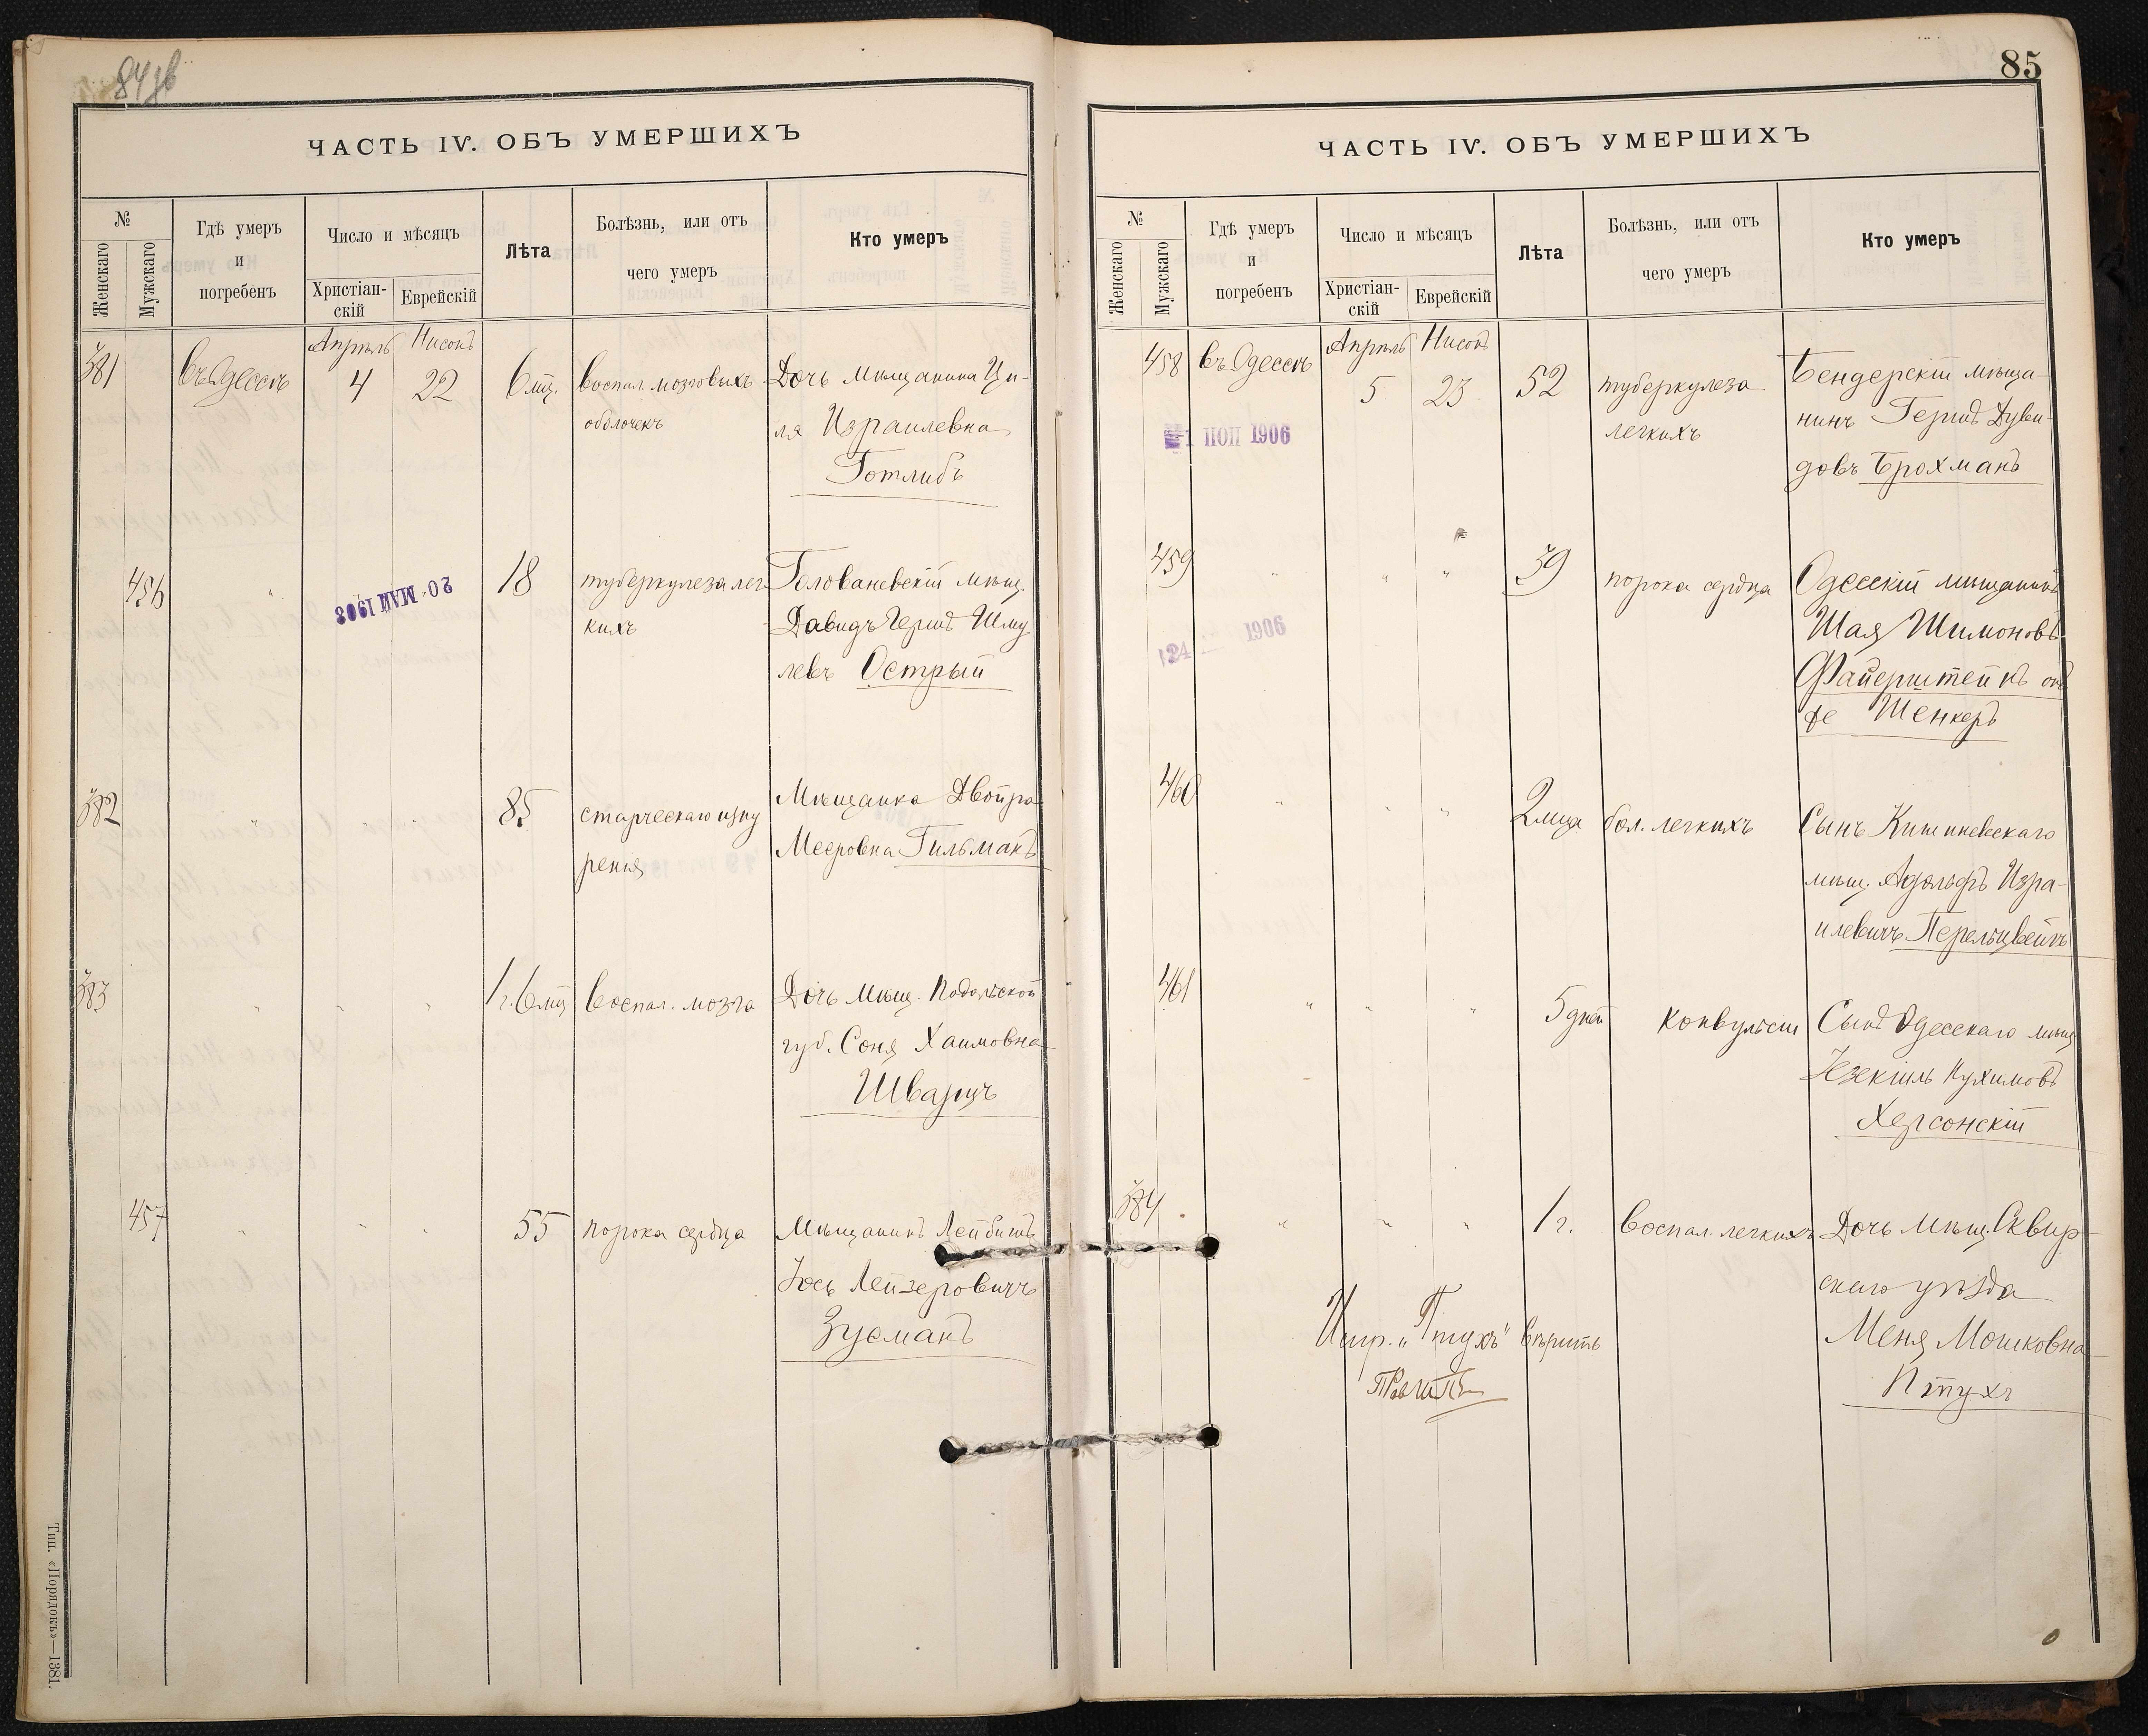 84 об
ЧАСТЬ IV. ОБЪ УМЕРШИХЪ
№
Женскаго
Мужскаго
Гдѣ умеръ
и
погребенъ
Число и мѣсяцъ
Христіан-
скій
Еврейскій
Лѣта
Болѣзнь, или отъ
чего умеръ
Кто умеръ
Апрѣль Нисонъ
381 въ Одессѣ 4 22 6 мц. воспал. мозговыхъ Дочь мѣщанина Ци-
оболочекъ ля Израилевна
Готлибъ
456 " 18 туберкулеза лег Голованевскій мѣщ.
20 МАЙ 1903
кихъ Давидъ Гершъ Шму
левъ Острый
382 " " " 85 старческаго изну Мѣщанка Двойра
ренія Меєровна Гильманъ
383 " " " 1 г. 6 мц воспал. мозга Дочь мѣщ. Подольской
губ. Соня Хаимовна
Шварцъ
457 " " " 55 порока сердца Мѣщанинъ Лейбишъ
Іось Лейзеровичъ
Зусманъ
Тип. «Порядокъ»—1381.
85
ЧАСТЬ IV. ОБЪ УМЕРШИХЪ
№
Женскаго
Мужскаго
Гдѣ умеръ
и
погребенъ
Число и мѣсяцъ
Христіан-
скій
Еврейскій
Лѣта
Болѣзнь, или отъ
чего умеръ
Кто умеръ
Апрѣль Нисонъ
458 въ Одессѣ 5 23 52 туберкулеза Бендерскій мѣща-
легкихъ нинъ Гершъ Дуви-
1906
довъ Брохманъ
459 " " " 39 порока сердца Одесскій мѣщанинъ
24 1906
Шая Шимоновъ
Файерштейнъ онъ
же Шенкеръ
460 " " " 2 мца бол. легкихъ Сынъ Кишиневскаго
мѣщ. Адольфъ Изра-
илевичъ Перельцвейгъ
461 " " " 5 дней конвульсіи Сынъ Одесскаго мѣщ
Іезекіиль Нухимовъ
Херсонскій
384 " " " 1 г. воспал. легкихъ Дочь мѣщ. Сквир-
скаго уѣзда
Меня Мошковна
Птухъ
Испр. „Птухъ" вѣрить